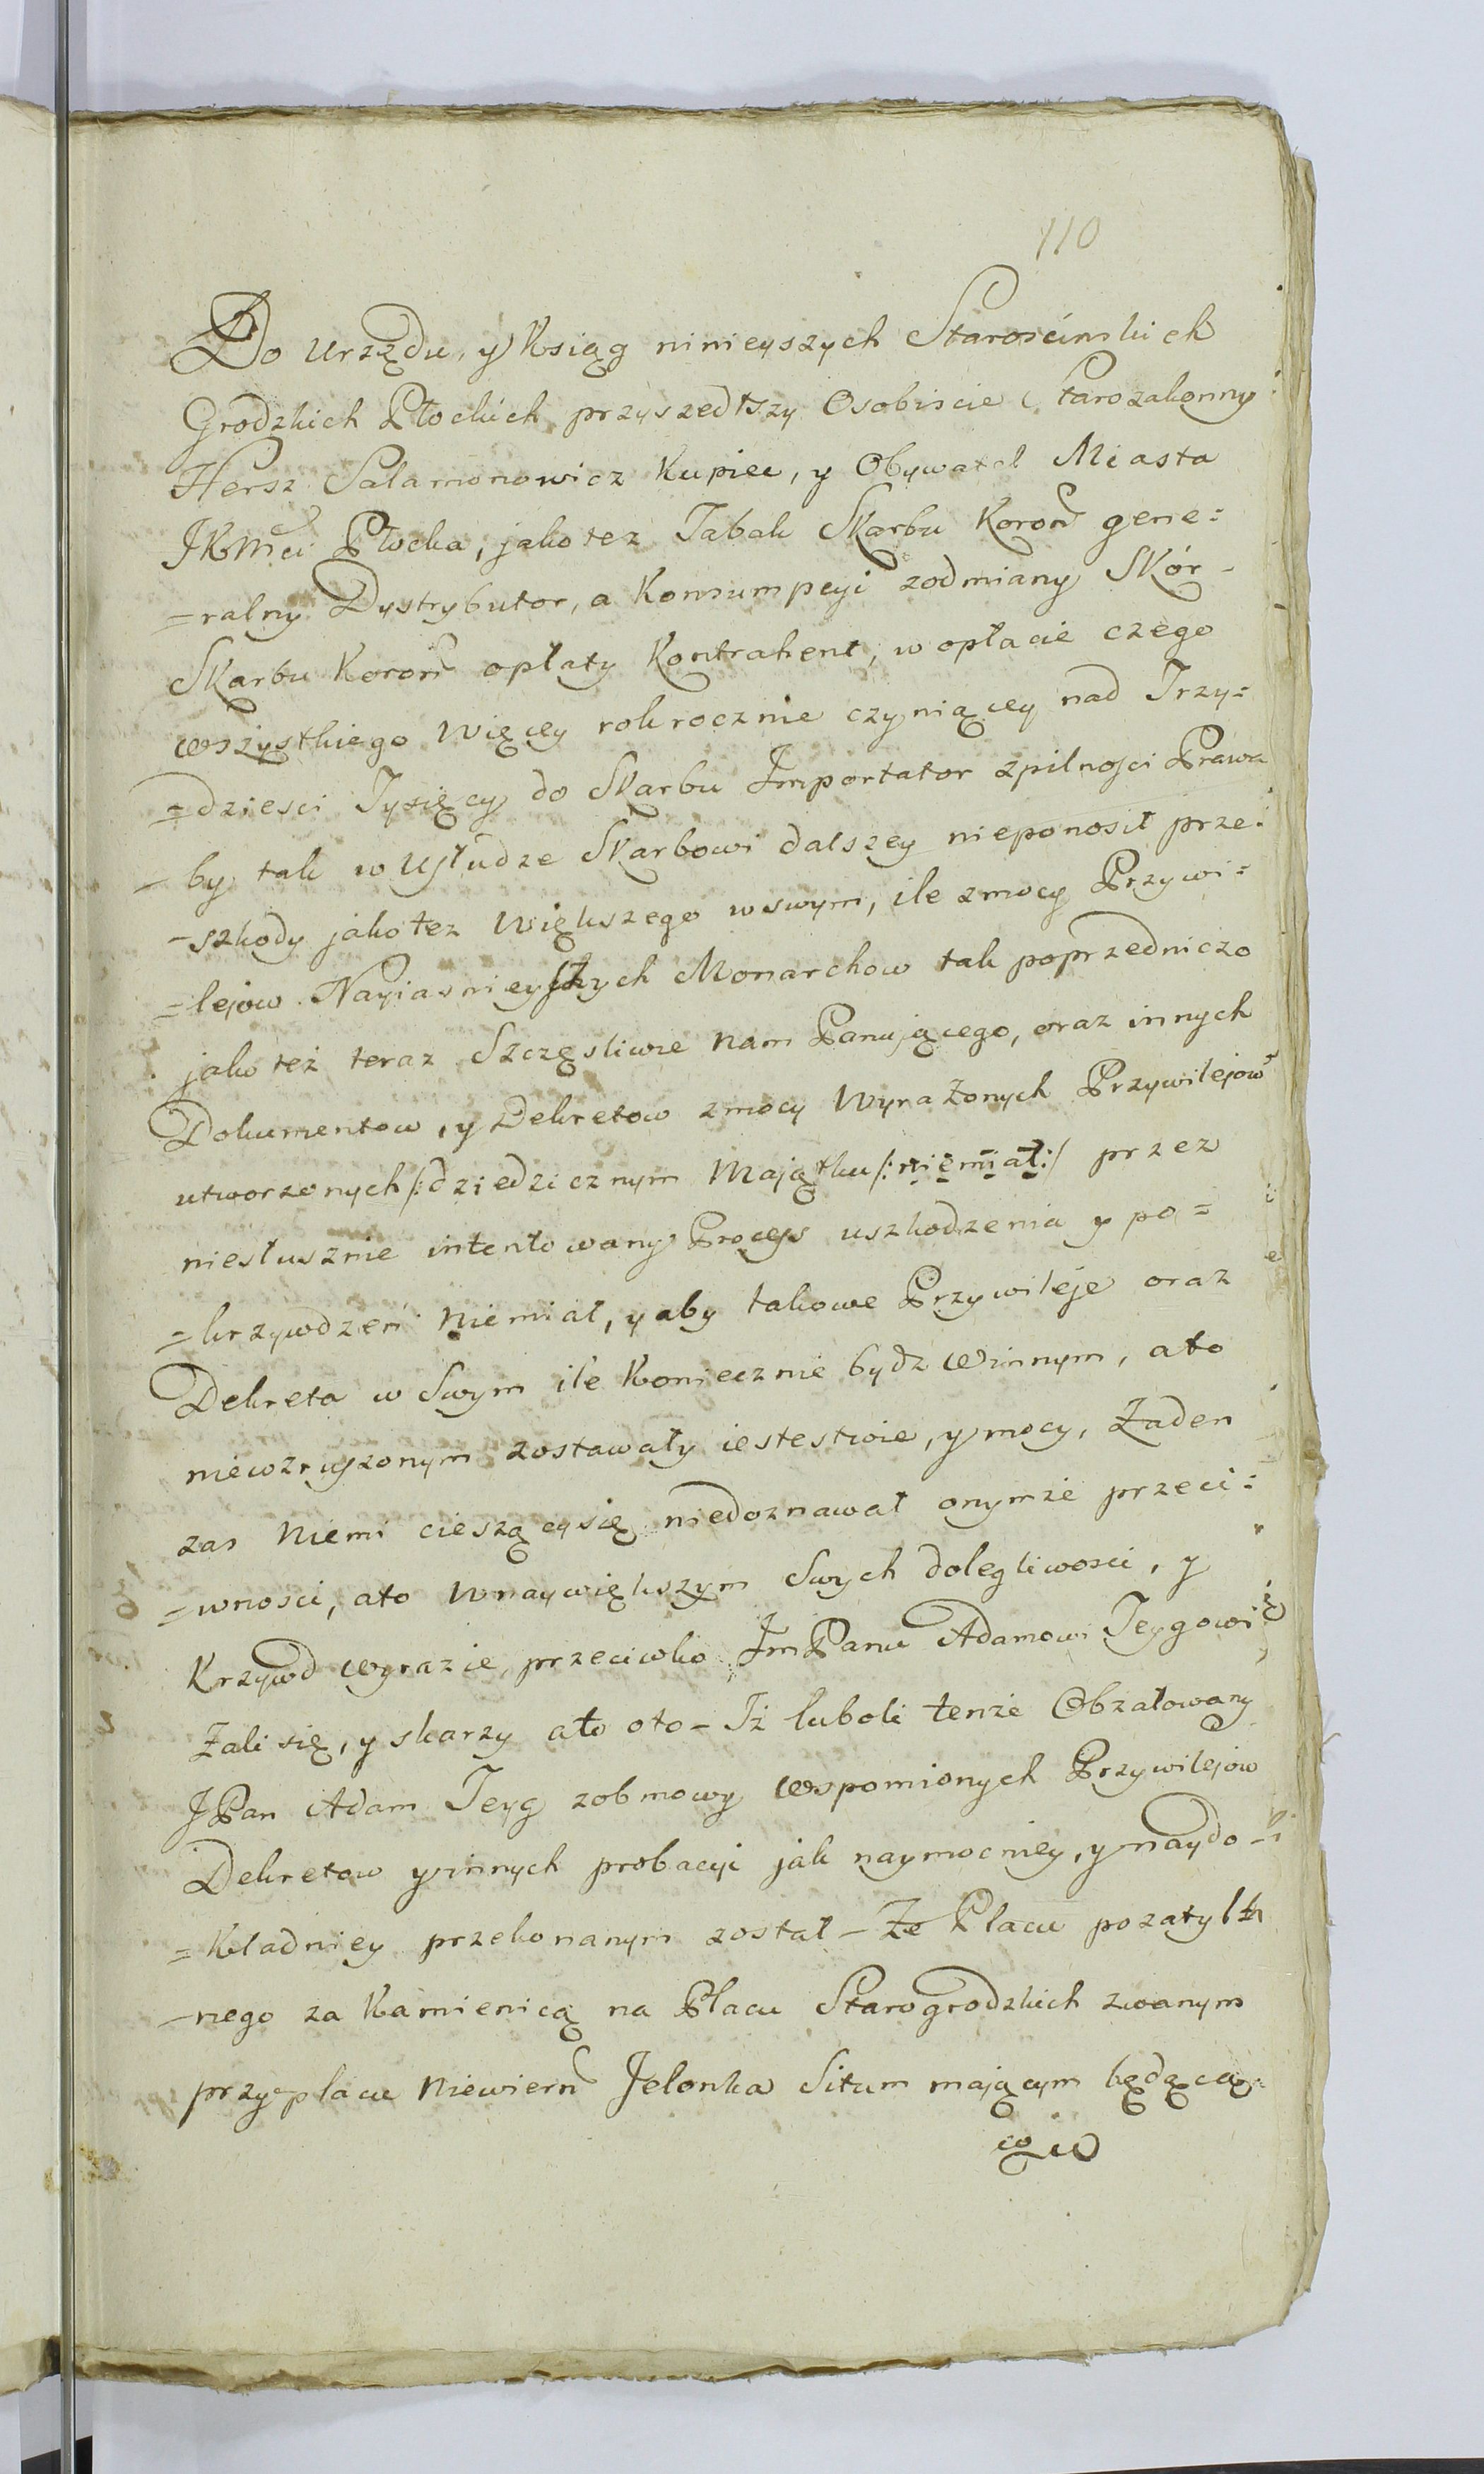 110
Do Urzędu, y Ksiąg ninieyszych Starościnskich
Grodzkich Płockich przyszedłszy Osobiscie Starozakonny
Hersz Salamonowicz Kupiec, y Obywatel Miasta
JKMci Płocka, jako tez Tabak Skarbu Koron gene=
=ralny Dystrybutor, a Konsumpcyi zodmiany Skór
Skarbu Koron opłaty Kontrahent, w opłacie czego
wszystkiego Więcey rokrocznie czyniącey nad Trzy=
=dziesci Tysięcy do Skarbu Importator zpilnosci Prawa
- by tak w Usłudze Skarbowi dalszey nieponosił prze=
-szkody jako tez Większego wswym, ile zmocy Przywi=
=lejow Nayiasnieyszych Monarchow tak poprzedniczo
jako też teraz Szczęsliwie nam Panującego, oraz innych
Dokumentow, y Dekretow zmocy Wyrażonych Przywilejow
utworzonych /: dziedzicznym Mająthu /: niemiał :/ przez
niesłusznie intentowany Process uszkodzenia y po=
=krzywdzeń Niemiał, y aby takowe Przywileje oraz
Dekreta w Swym ile Koniecznie bydz Winnym, ato
niewzruszonym zostawały iestestwie, y mocy, Żaden
zas Niemi cieszący się niedoznawał onymże przeci=
=wnosci, ato Wnaywiększym Swych dolegliwosci, y
Krzywd wyrazie, przeciwko ImPanu Adamowi Teygowi
Żali się, y skarzy ato oto - Iż luboli tenże Obzałowany
JPan Adam Teyg zobmowy Wspomionych Przywilejow
Dekretow y innych probacyi jak naymocniey, y naydo-
=kładniey przekonanym został - Że Placu pozatyl
-nego za Kamienicą na Placu Starogrodzkich zwanym
przy placu Niewiern Jelonka Situm mającym będące
go w